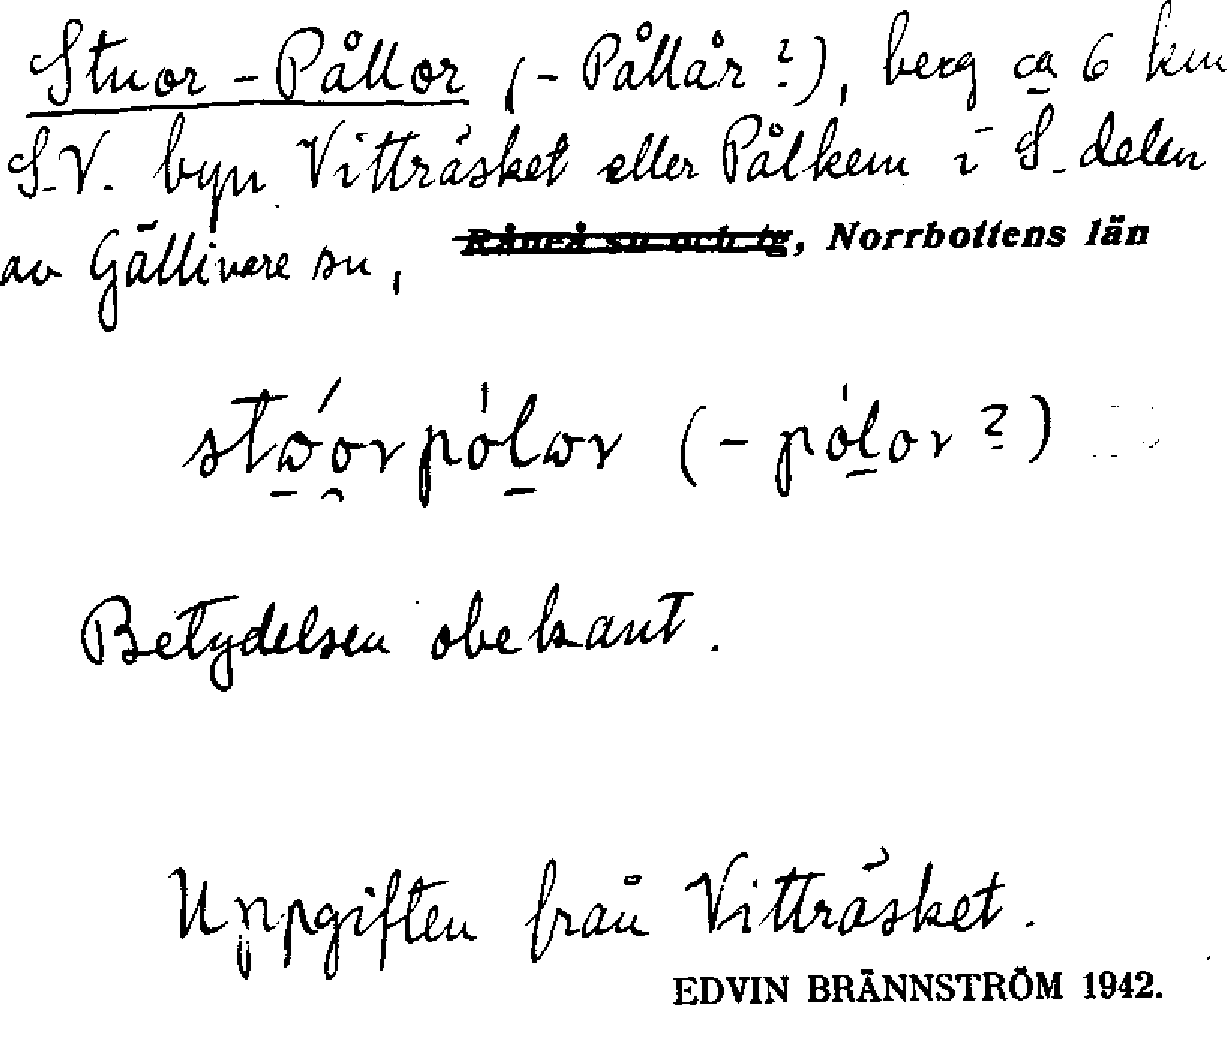 Stuor-Pållor (-Pållår?), berg ca 6 km
S.V. byn Vitträsket eller Pålkem i S. delen
av Gällivare sn, Råneå sn och tg, Norrbottens län
stώ̱o̯rpó̍ḻωr (-pó̍ḻor?)
Betydelsen obekant.
Uppgiften från Vitträsket.
EDVIN BRÄNNSTRÖM 1942.